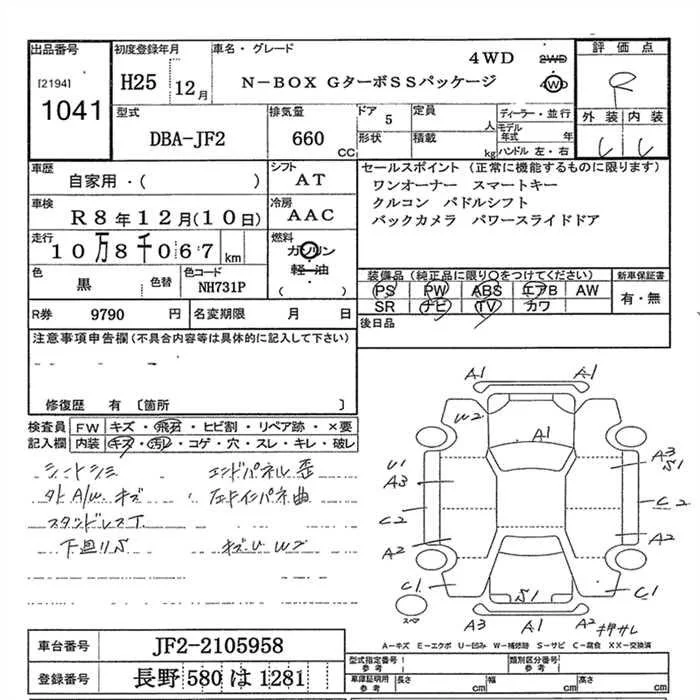 出品番号
[2194]
1041
初度登録年月
H25 12月
車名・グレード
4WD
N-BOX GターボSSパッケージ
2WD
4WD
評価点
R
外装 内装
型式
DBA-JF2
排気量
660
CC
ドア
5
形状
定員
人
積載
kg
ディーラー・並行
モデル年式 年
ハンドル 左・右
車歴
自家用・( )
車検
R8年12月(10日)
走行
10万8千067 km
色
黒
色替
色コード
NH731P
シフト
AT
冷房
AAC
燃料
ガソリン
軽油
( )
セールスポイント (正常に機能するものに限ります)
ワンオーナー スマートキー
クルコン パドルシフト
バックカメラ パワースライドドア
装備品 (純正品に限り○をつけてください)
PS PW ABS エアB AW
SR ナビ TV カワ
新車保証書
有・無
後日品
R券 9790 円
名変期限 月 日
注意事項申告欄 (不具合内容等は具体的に記入して下さい)
修復歴 有 〔箇所 〕
検査員記入欄
FW キズ・飛石・ヒビ割・リペア跡・×要
内装 キズ・汚れ・コゲ・穴・スレ・キレ・破レ
シートシミ
エンドパネル歪
外 A/W キズ
下廻りS
キズU W2
A1 A1
W2
A1
U1
A3
A3
S1
C2
C2
A2
A2
C1
C1
S1
スペア
A3 A1 A2
押サレ
A-キズ E-エクボ U-凹み W-補修跡 S-サビ C-腐食 XX-交換済
車台番号
JF2-2105958
登録番号
長野 580 は 1281
型式指定番号
参考
類別区分番号
参考
車庫証明用
参考
長さ cm
幅 cm
高さ cm